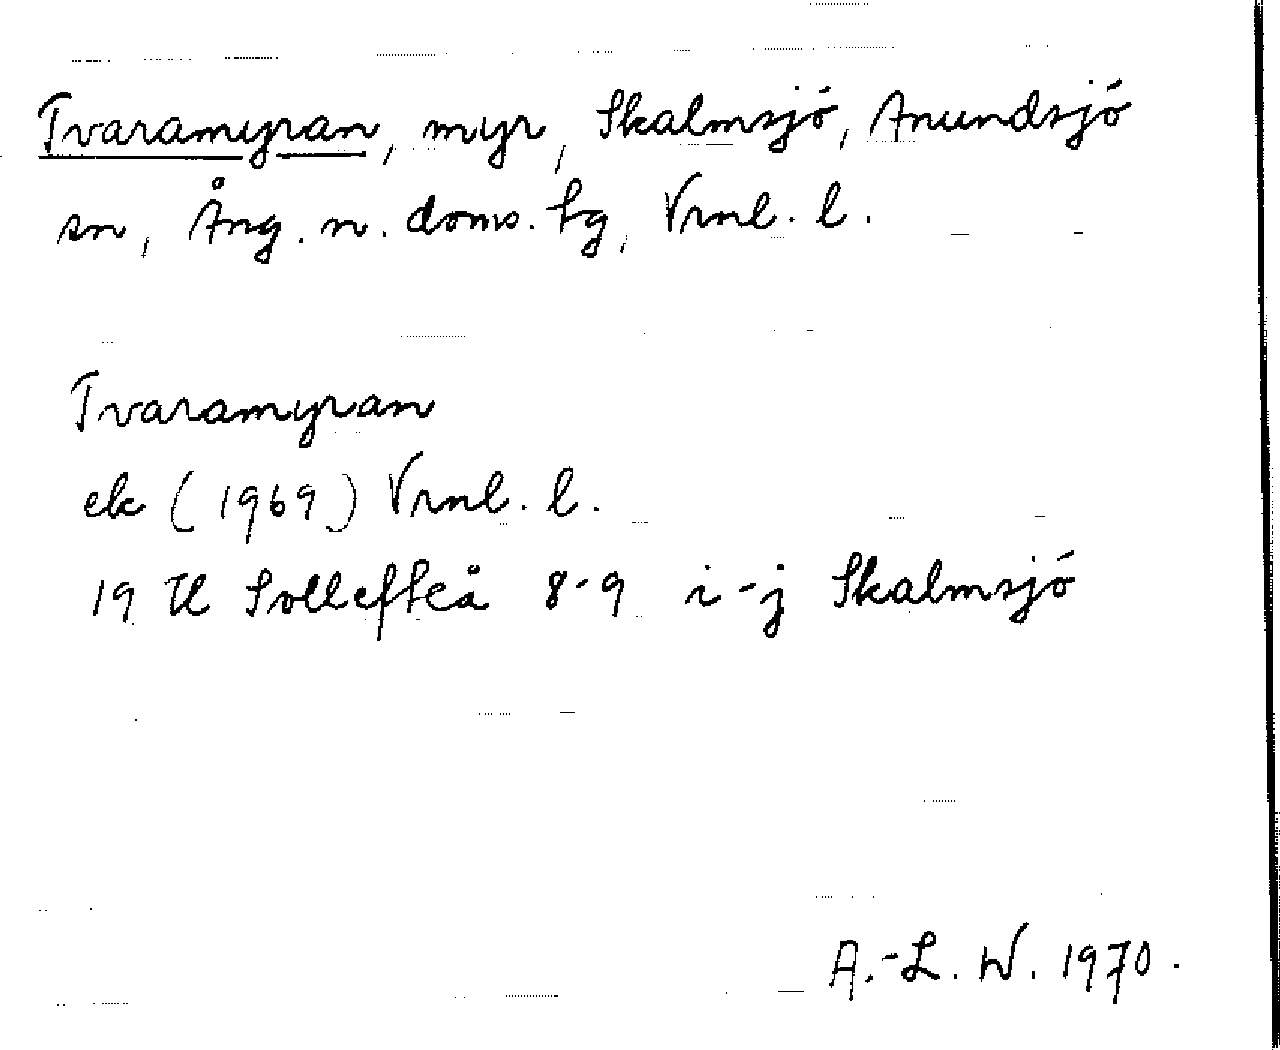 Tvaramyran, myr, Skalmsjö, Anundsjö
sn, Ång. n. doms. tg, Vrnl. l.
Tvaramyran
ek (1969) Vrnl. l.
19 H Sollefteå 8-9 i-j Skalmsjö
A.-L. W. 1970.